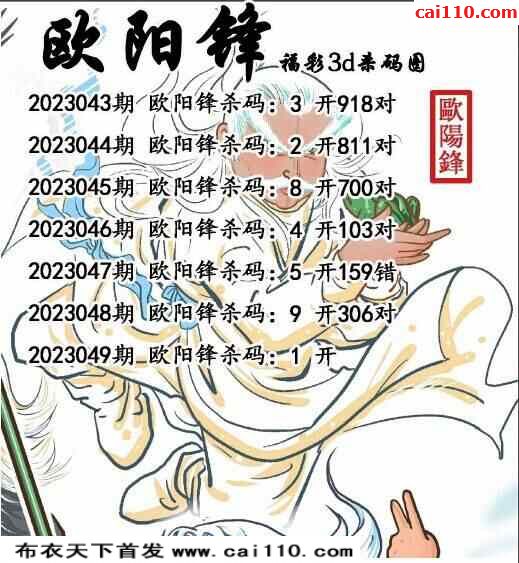 cai110.com
欧阳锋
福彩3d杀码图
歐陽鋒
2023043期 欧阳锋杀码：3 开918对
2023044期 欧阳锋杀码：2 开811对
2023045期 欧阳锋杀码：8 开700对
2023046期 欧阳锋杀码：4 开103对
2023047期 欧阳锋杀码：5 开159错
2023048期 欧阳锋杀码：9 开306对
2023049期 欧阳锋杀码：1 开
布衣天下首发 www.cai110.com